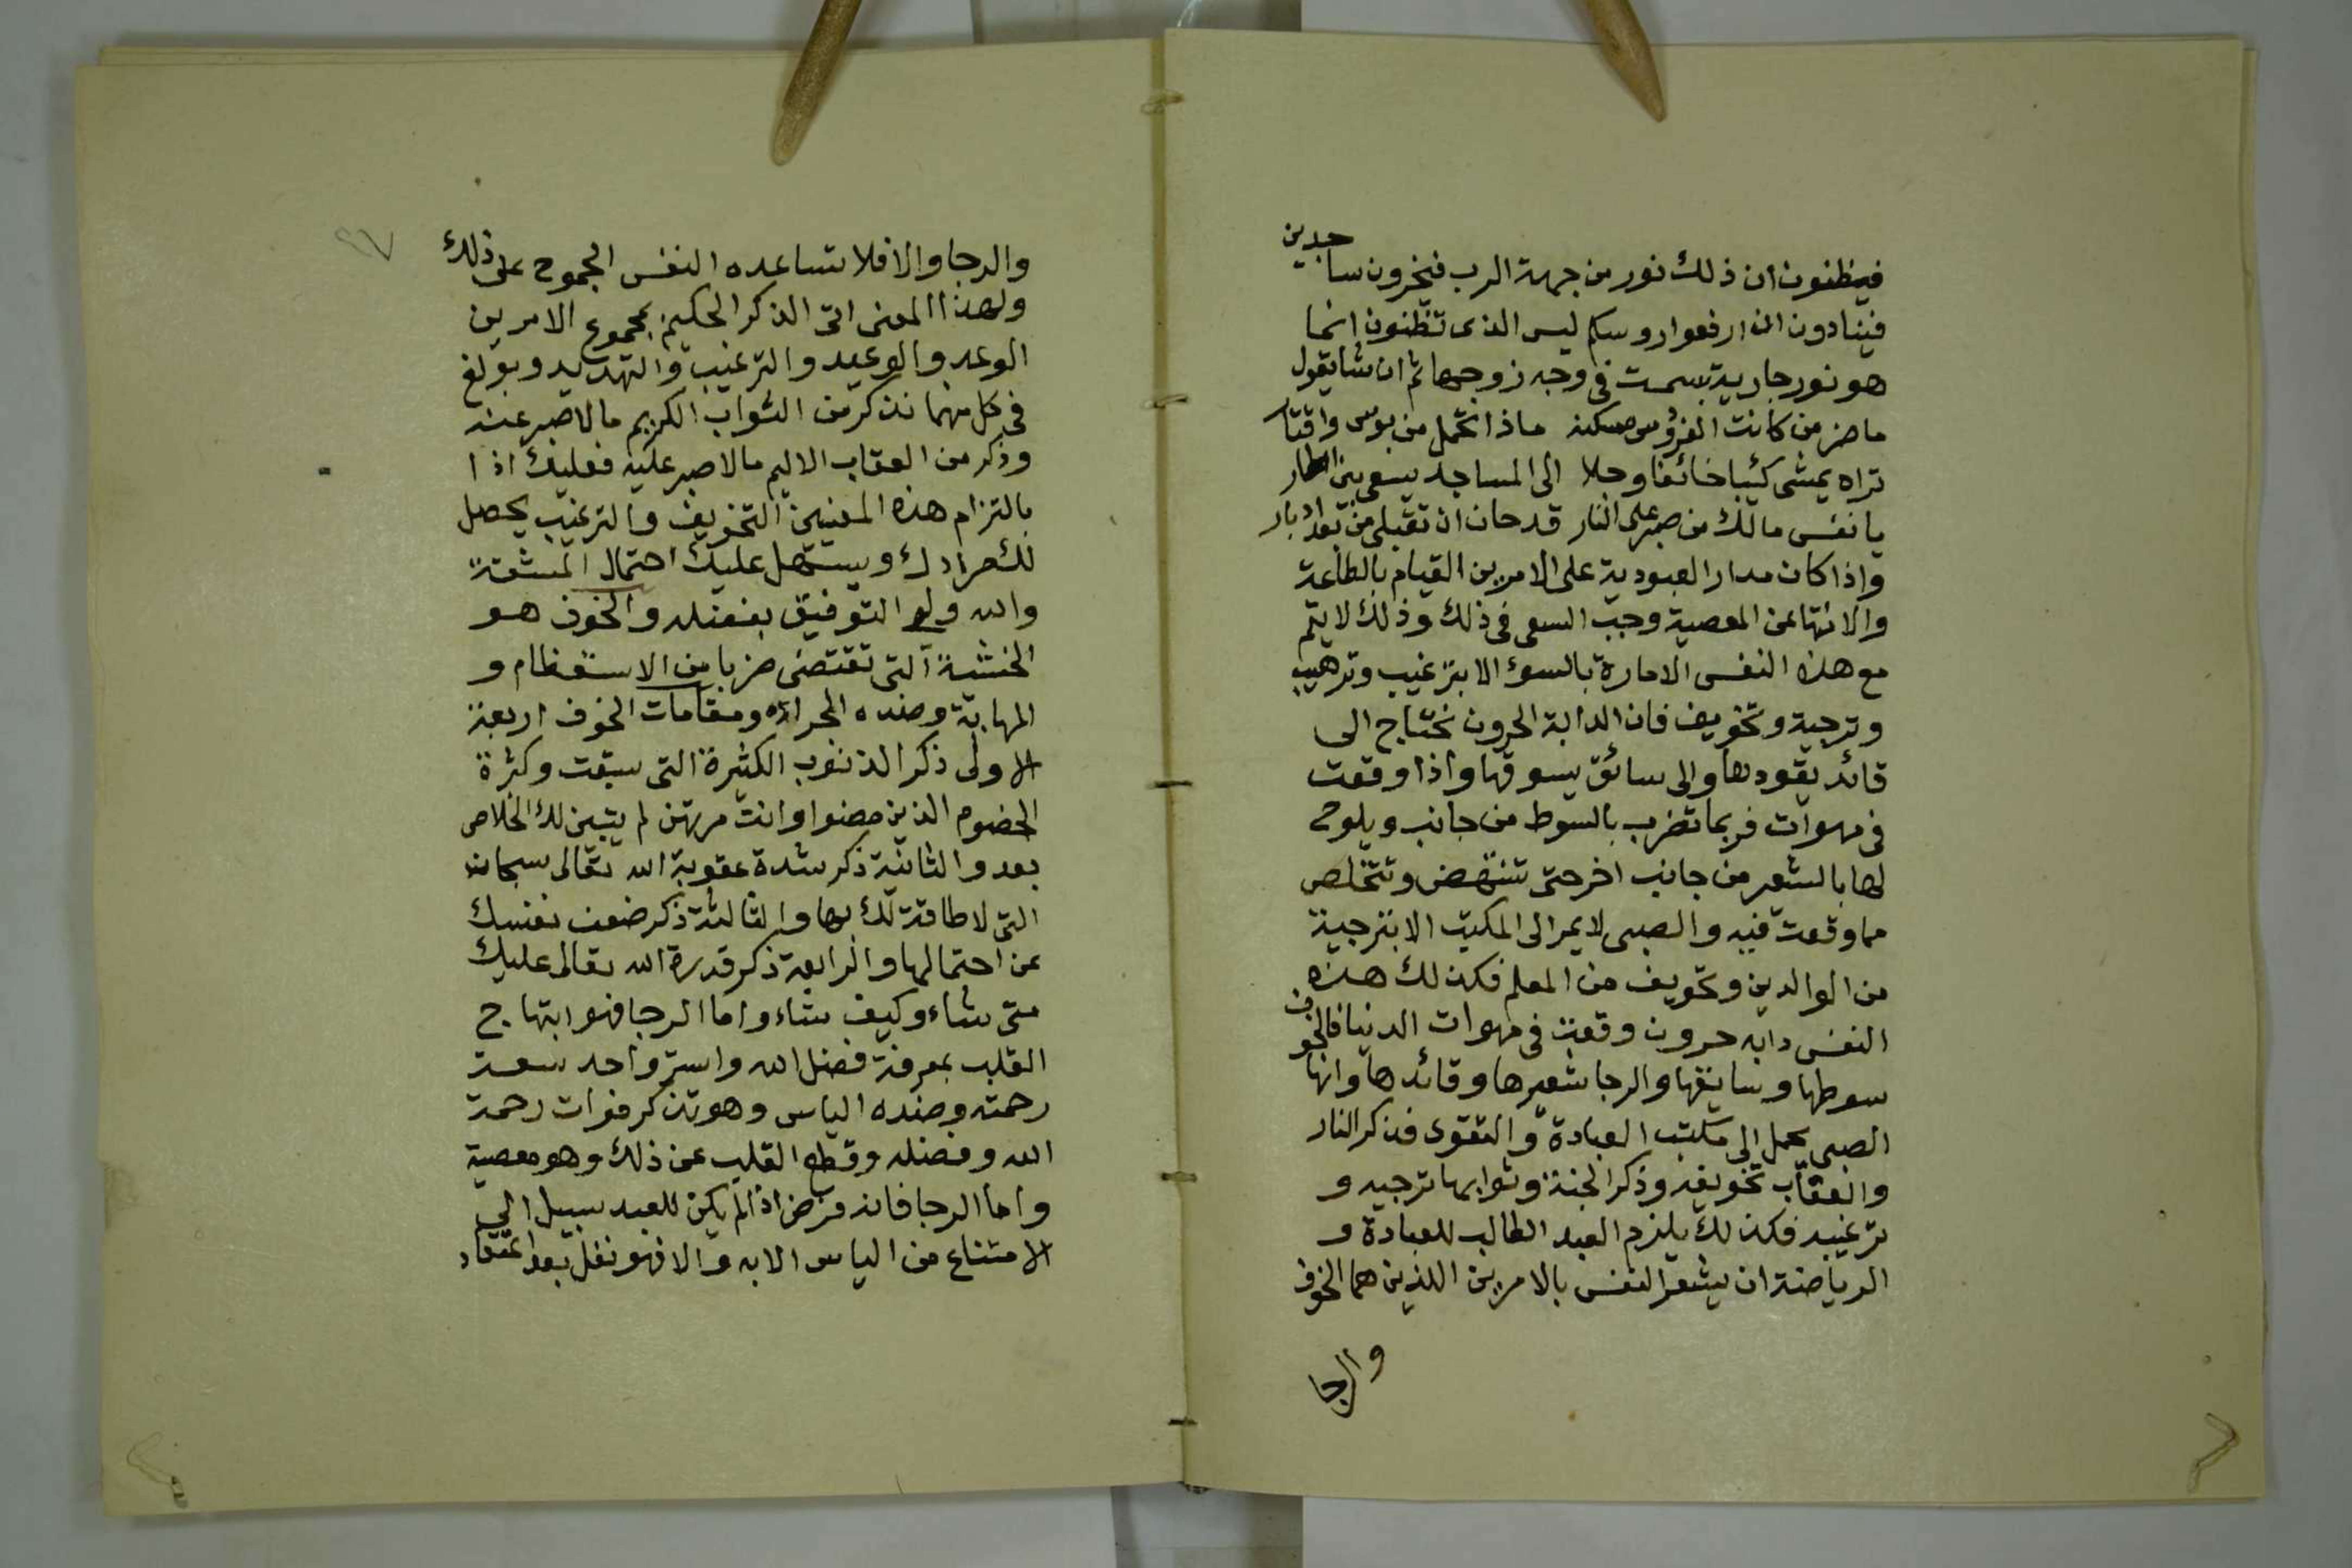 فيظنون ان ذلك نور من جهة الرب فيخرون ساجدين
فينادون ان ارفعوا روسكم ليس الذى تظنون انما
هو نور جارية بسمت فى وجه زوجها ثم انشا يقول
ما ضر من كانت الفردوس مسكنه ماذا تحمل من بوس واقتار
تراه يمشى كئيبا خائفا وجلا الى المساجد يسعى بين اطمار
يا نفس مالك من صبر على النار قد حان ان تقبلى من بعد ادبار
واذا كان مدار العبودية على الامرين القيام بالطاعة
والانتها عن المعصية وجب السعى فى ذلك وذلك لا يتم
مع هذه النفس الامارة بالسوء الا بترغيب وترهيب
وترجية وتخويف فان الدابة الحرون تحتاج الى
قائد يقودها والى سائق يسوقها واذا وقعت
فى مهوات فربما تضرب بالسوط من جانب ويلوح
لها بالشعير من جانب اخر حتى تنهض وتتخلص
مما وقعت فيه والصبى لا يمر الى المكتب الا بترجية
من الوالدين وتخويف من المعلم فكذلك هذه
النفس دابه حرون وقعت فى مهوات الدنيا فالخوف
سوطها وسائقها والرجا شعيرها وقائدها وانها
الصبى يحمل الى مكتب العبادة والتقوى فذكر النار
والعقاب تخويفه وذكر الجنة وثوابها ترجيه و
ترغيبه فكذلك يلزم العبد الطالب للعبادة و
الرياضة ان يشعر النفس بالامرين اللذين هما الخوف
والرجا
٢٧
والرجا والا فلا تساعده النفس الجموح على ذلك
ولهذا المعنى اتى الذكر الحكيم بمجموع الامرين
الوعد والوعيد والترغيب والتهديد وبولغ
فى كل منهما نذكر من الثواب الكريم ما لا صبر عنه
وذكر من العقاب الاليم ما لا صبر عليه فعليك اذا
بالتزام هذه المعنيين التخويف والترغيب يحصل
لك مرادك ويستهل عليك احتمال المشقة
والله ولى التوفيق بفضله والخوف هو
الخشية التى تقتضى ضربا من الاستعظام و
المهابة وضده الجراة ومقامات الخوف اربعة
الاولى ذكر الذنوب الكثيرة التى سبقت وكثرة
الخصوم الذين مضوا وانت مرتهن لم يتبين لك الخلاص
بعد والثانية ذكر شدة عقوبة الله تعالى سبحانه
التى لا طاقة لك بها والثالثة ذكر ضعف نفسك
عن احتمالها والرابعة ذكر قدرة الله تعالى عليك
متى شاء وكيف شاء واما الرجا فهو ابتهاج
القلب بمعرفة فضل الله واسترواحه سعة
رحمته وضده الياس وهو تذكر فوات رحمة
الله وفضله وقطع القلب عن ذلك وهو معصية
واما الرجا فانه فرض اذا لم يكن للعبد سبيل الى
الامتناع من الياس الا به والا فهو نفل بعد اعتقاد